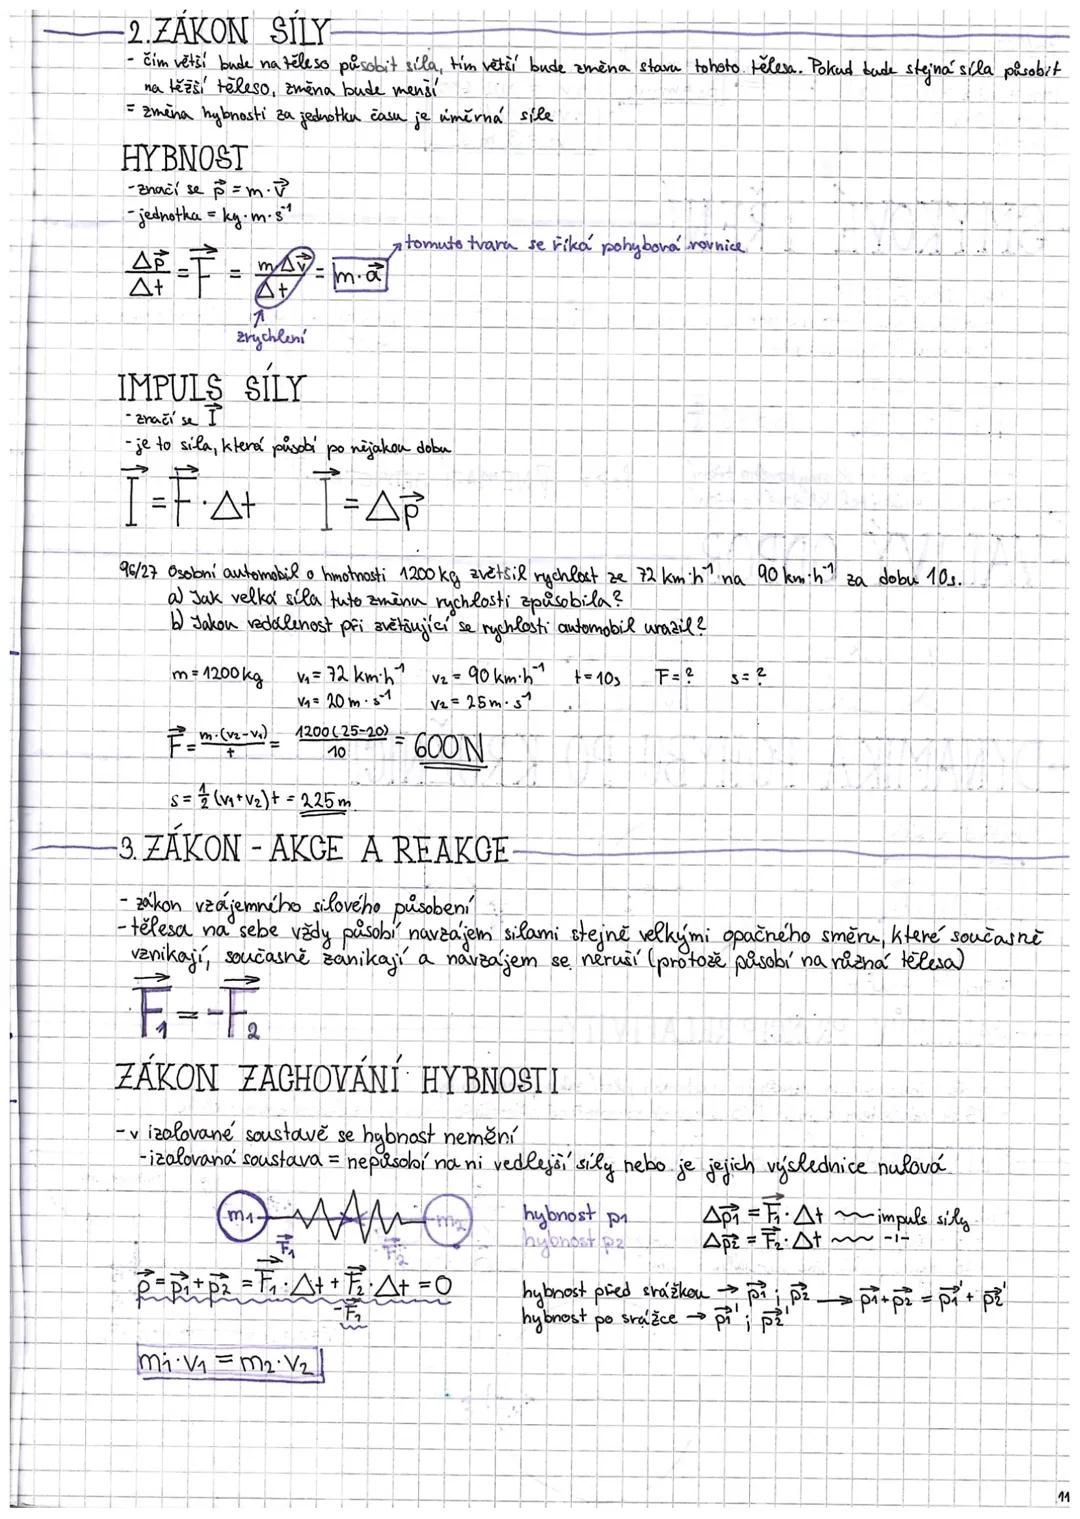 2. ZÁKON SÍLY
- čím větší bude na těleso působit síla, tím větší bude změna stavu tohoto tělesa. Pokud bude stejná síla působit
na těžší těleso, změna bude menší
= změna hybnosti za jednotku času je úměrná síle
HYBNOST
- značí se p⃗ = m·v⃗
- jednotka = kg·m·s⁻¹
Δp⃗/Δt = F⃗ = m·Δv⃗/Δt = m·a⃗ tomuto tvaru se říká pohybová rovnice
zrychlení
IMPULS SÍLY
- značí se I⃗
- je to síla, která působí po nějakou dobu
I⃗ = F⃗·Δt I⃗ = Δp⃗
96/27 Osobní automobil o hmotnosti 1200 kg zvětšil rychlost ze 72 km·h⁻¹ na 90 km·h⁻¹ za dobu 10s.
a) Jak velká síla tuto změnu rychlosti způsobila?
b) Jakou vzdálenost při zvětšující se rychlosti automobil urazil?
m = 1200 kg v₁ = 72 km·h⁻¹ v₂ = 90 km·h⁻¹ t = 10s F = ? s = ?
v₁ = 20 m·s⁻¹ v₂ = 25 m·s⁻¹
F⃗ = m·(v₂-v₁)/t = 1200(25-20)/10 = 600 N
s = 1/2 (v₁+v₂)t = 225 m
3. ZÁKON - AKCE A REAKCE
- zákon vzájemného silového působení
- tělesa na sebe vždy působí navzájem silami stejně velkými opačného směru, které současně
vznikají, současně zanikají a navzájem se neruší (protože působí na různá tělesa)
F⃗₁ = -F⃗₂
ZÁKON ZACHOVÁNÍ HYBNOSTI
- v izolované soustavě se hybnost nemění
- izolovaná soustava = nepůsobí na ni vedlejší síly nebo je jejich výslednice nulová
m₁ m₂ hybnost p₁ Δp⃗₁ = F⃗₁·Δt ~ impuls síly
F⃗₁ F⃗₂ hybnost p₂ Δp⃗₂ = F⃗₂·Δt ~ -||-
p⃗ = p⃗₁ + p⃗₂ = F⃗₁·Δt + F⃗₂·Δt = 0 hybnost před srážkou → p⃗₁ ; p⃗₂ → p⃗₁ + p⃗₂ = p⃗₁' + p⃗₂'
hybnost po srážce → p⃗₁' ; p⃗₂'
m₁·v₁ = m₂·v₂
11